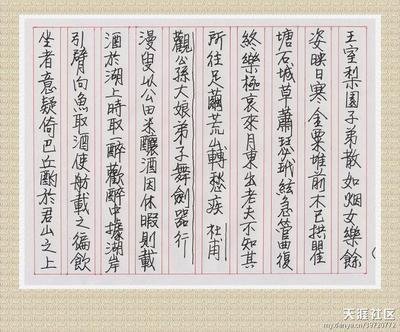 王室梨園子弟散如烟女樂餘
姿映日寒金粟堆前木已拱瞿
塘石城草蕭瑟玳絃急管曲復
終樂極哀來月東出老夫不知其
所往足繭荒山轉愁疾 杜甫
觀公孫大娘弟子舞劍器行
漫叟以公田米釀酒因休暇則載
酒於湖上時取一醉歡醉中據湖岸
引臂向魚取酒使舫載之徧飲
坐者意疑倚巴丘酌於君山之上
天涯社区